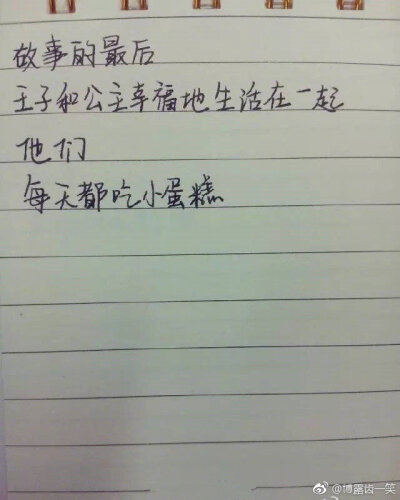 故事的最后
王子和公主幸福地生活在一起
他们
每天都吃小蛋糕
@博露齿一笑